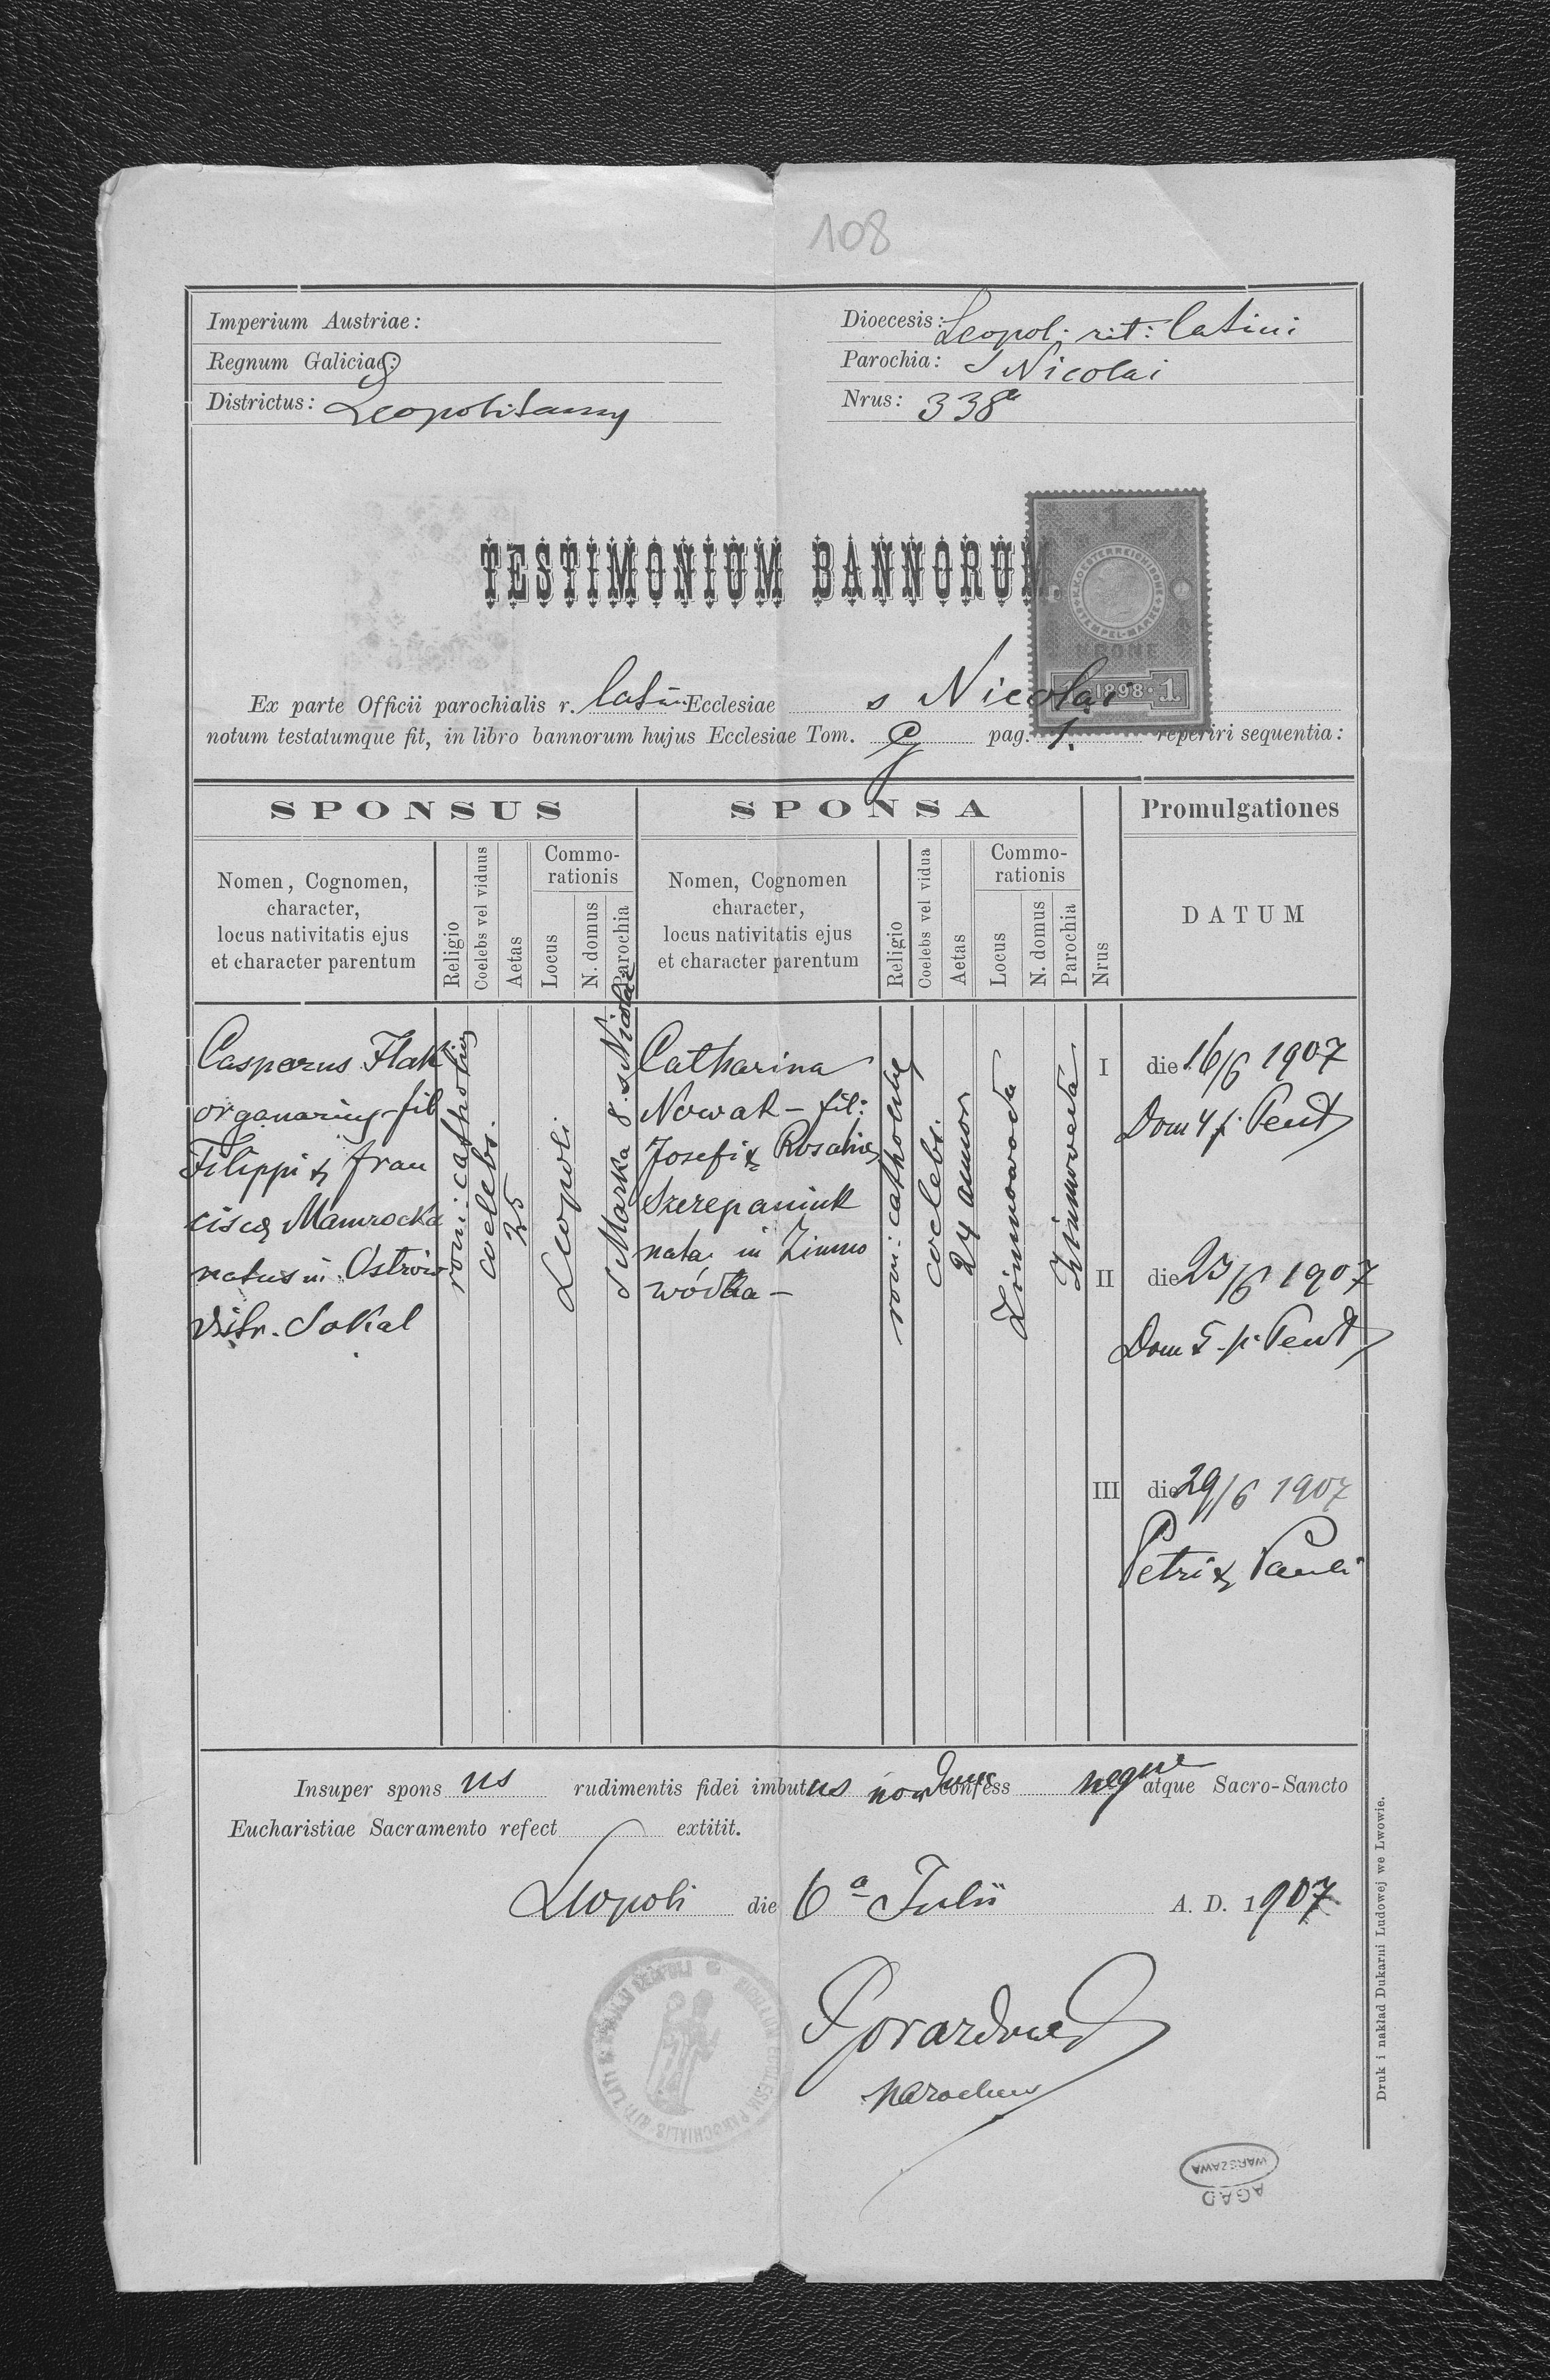 108
Imperium Austriae:
Regnum Galiciae:
Districtus: Leopolitanus
Dioecesis: Leopol: rit: latini
Parochia: S Nicolai
Nrus: 338
TESTIMONIUM BANNORUM
1 KRONE
K.K. OESTERREICHISCHE STEMPEL-MARKE
1 1898 1
Ex parte Officii parochialis r. latin Ecclesiae s Nicolai
notum testatumque fit, in libro bannorum hujus Ecclesiae Tom. pag. 1. reperiri sequentia:
SPONSUS SPONSA Promulgationes
Nomen, Cognomen,
character,
locus nativitatis ejus
et character parentum
Religio
Coelebs vel viduus
Aetas
Commo-
rationis
Locus
N. domus
Parochia
Nomen, Cognomen
character,
locus nativitatis ejus
et character parentum
Religio
Coelebs vel vidua
Aetas
Commo-
rationis
Locus
N. domus
Parochia
Nrus
DATUM
Casparus Flak
organarius fil
Filippi & Fran
ciscae Mamrocka
natus in Ostrów
distr. Sokal
rom: catholicus
coelebs.
25
Leopoli.
S Marka 8. s Nicolai
Catharina
Nowak – fil:
Josefi & Rosaliae
Szczepaniuk
nata in Zimno
wódka –
rom: catholicae
coelebs.
24 annor
Zimnowoda
Zimnowoda
I die 16/6 1907
Dom 4 p. Pent
II die 23/6 1907
Dom 5 p. Pent
III die 29/6 1907
Petri & Pauli
Insuper spons us rudimentis fidei imbut us non dum confess neque atque Sacro-Sancto
Eucharistiae Sacramento refect extitit.
Leopoli die 6ª Julii A. D. 1907
parochus
Druk i nakład Dukarni Ludowej we Lwowie.
WARSZAWA
A.G.A.D